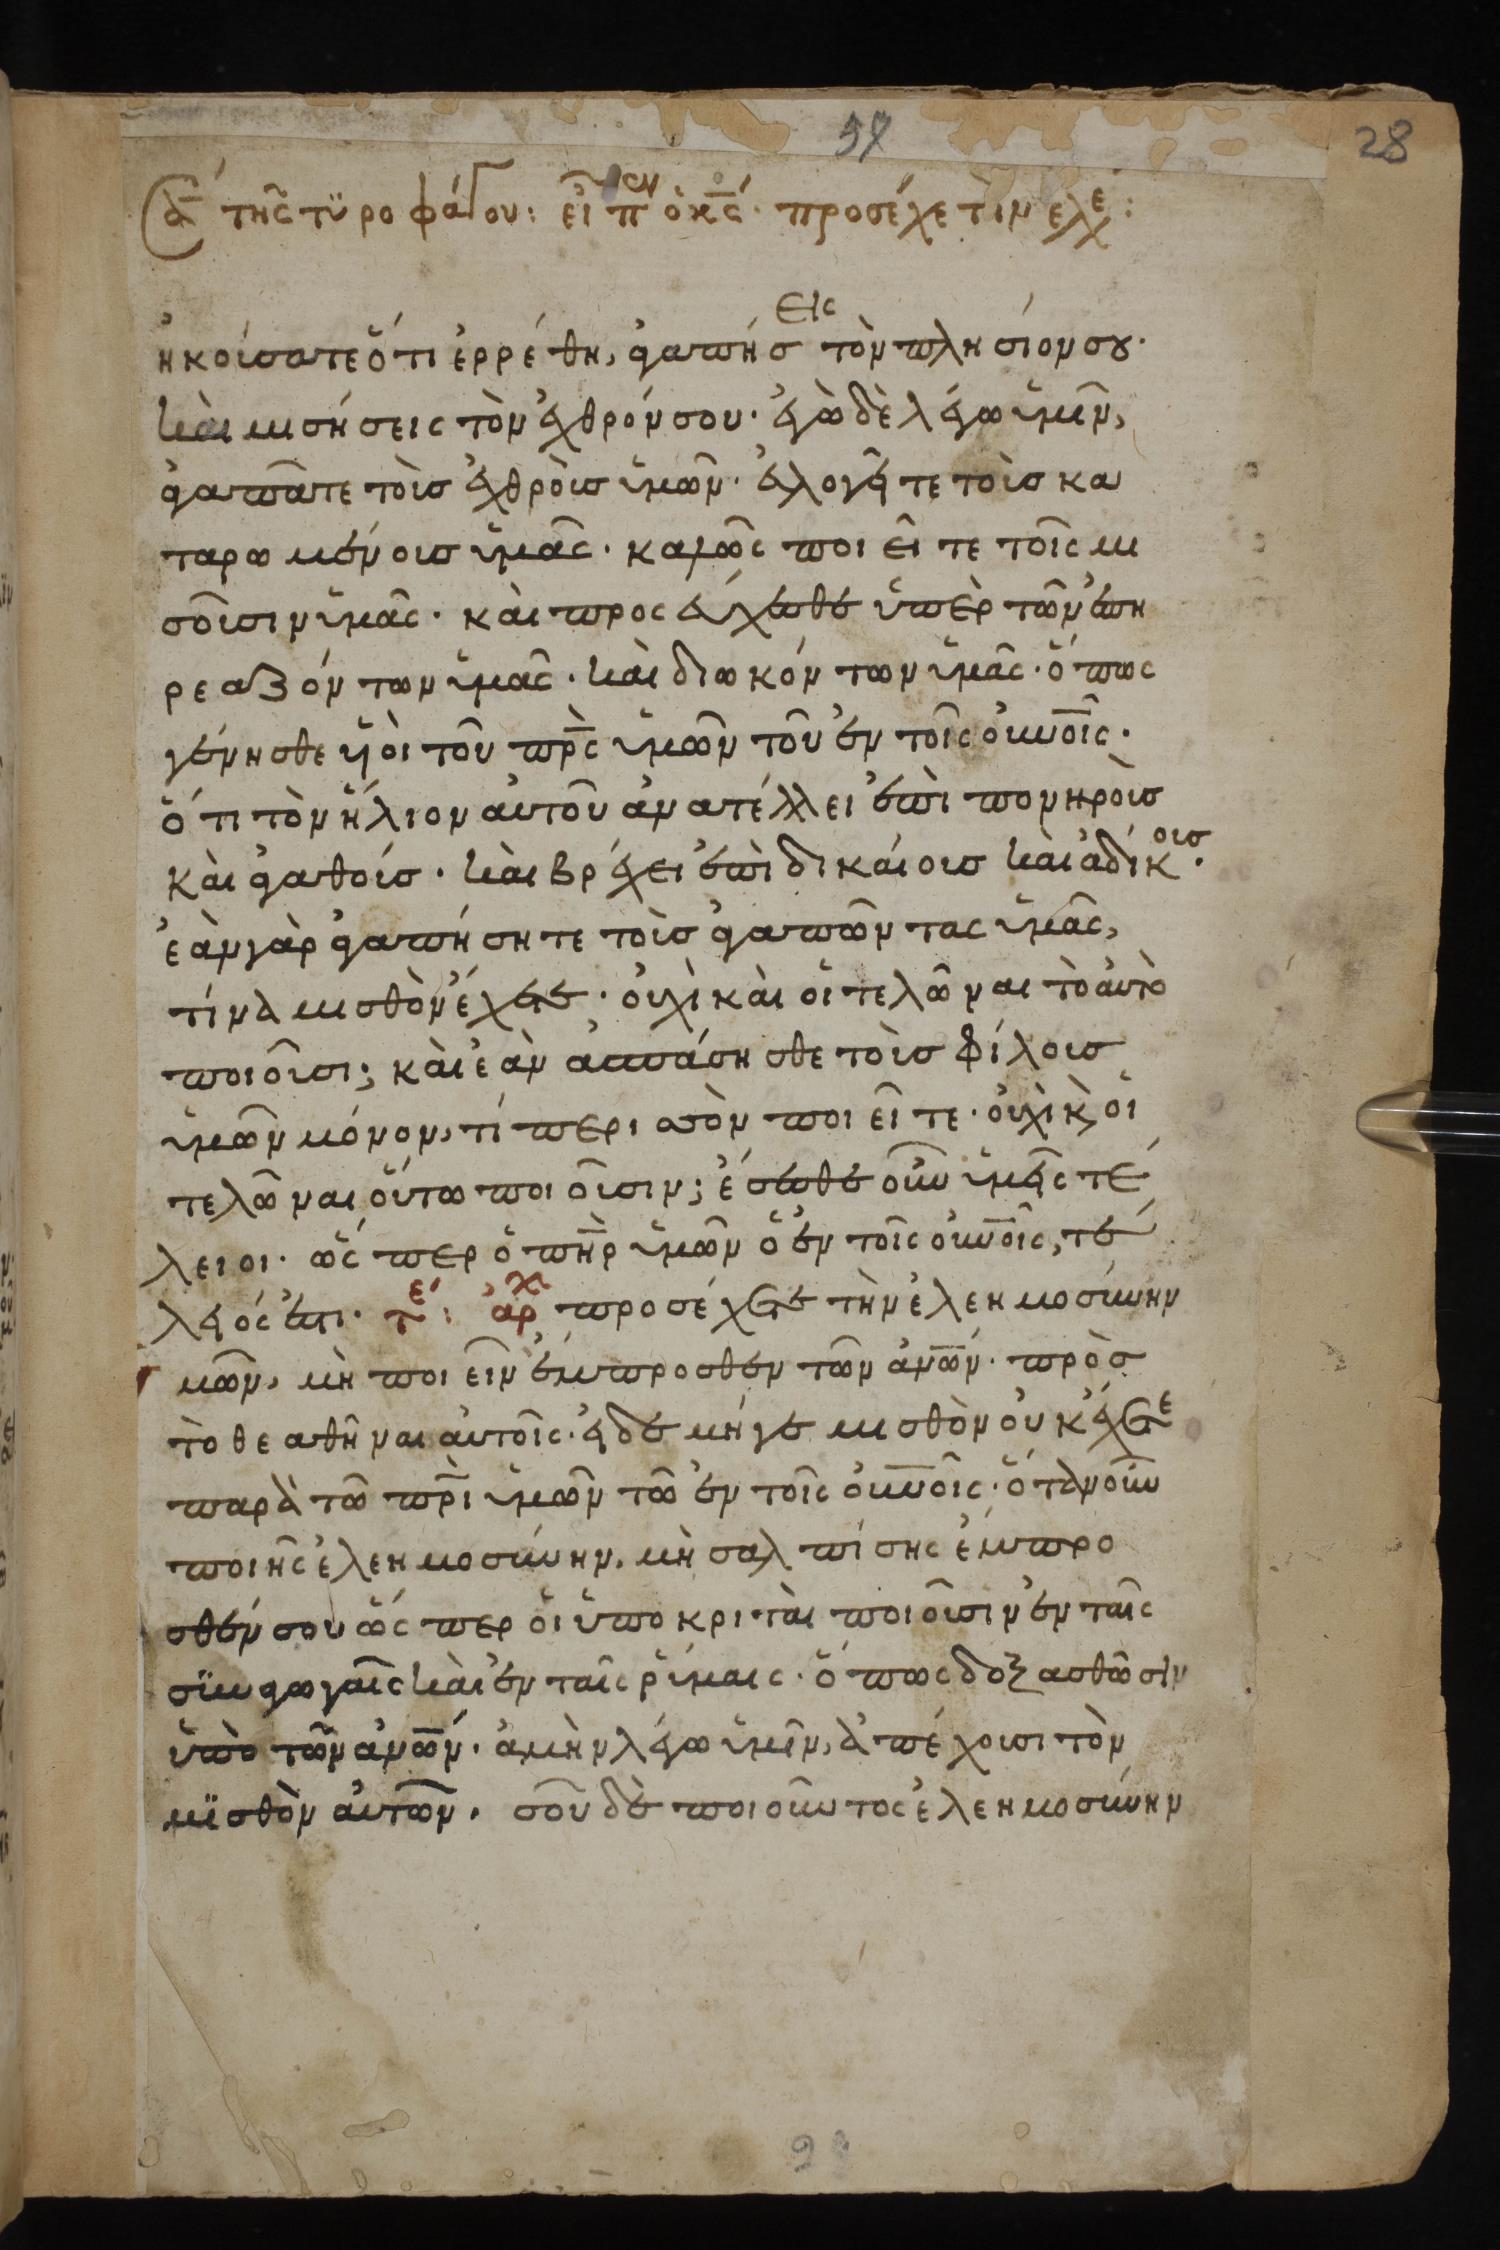 57
28
τῆς τϋροφάγου: εἶπεν ὁ κς´· προσέχετὶμ ελχε:
ἠκοίσατε ὅτι ἐρρέθη, ἀγαπήσεις τὸν πλησίον σου·
καὶ μισήσεις τὸν ἐχθρόν σου· ἐγὼ δὲ λέγω ὑμῖν,
ἀγαπᾶτε τοὶσ ἐχθροὶσ ὑμῶν· εὐλογεῖτε τοὶσ κα
ταρωμένοισ ὑμᾶς· καλῶς ποιεῖτε τοῖς μι
σοῖσιν ὑμᾶς· καὶ προσεύχεσθε ὑπὲρ τῶν ἐπη
ρεαζόντων ὑμᾶς· καὶ διωκόντων ὑμᾶς· ὅπως
γένησθε ὑοὶ τοῦ πρς ὑμῶν τοῦ ἐν τοῖς οὐνοῖς·
ὅτι τὸν ἥλιον αὐτοῦ ἀνατέλλει ἐπὶ πονηροὶσ
καὶ ἀγαθοίσ· καὶ βρέχει ἐπὶ δικαίοισ καὶ ἀδίκοισ·
ἐὰν γὰρ ἀγαπήσητε τοὶσ ἀγαπῶντας ὑμᾶς,
τίνα μισθὸν ἔχετε· οὐχὶ καὶ οἱ τελῶναι τὸ αὐτὸ
ποιοῖσι; καὶ ἐὰν ἀσπάσησθε τοὶσ φίλοισ
ὑμῶν μόνον, τί περισσὸν ποιεῖτε· οὐχὶ κ οἱ
τελῶναι οὕτω ποιοῖσιν; ἔσεσθε οὖν ὑμεῖς τέ
λειοι· ὥσπερ ὁ πηρ ὑμῶν ὁ ἐν τοῖς οὐνοῖς, τέ
λειός ἐστι· τε: ἀρχ προσέχετε τὴν ἐλεημοσύνην
μῶν, μὴ ποιεῖν ἔμπροσθεν τῶν ἀνων· πρὸσ
τὸ θεαθῆναι αὐτοῖς· εἰ δὲ μήγε μισθὸν οὐκ ἔχετε
παρὰ τῶ πρι ὑμῶν τῶ ἐν τοῖς οὐνοῖς· ὅταν οὖν
ποιῆς ἐλεημοσύνην, μὴ σαλπίσης ἔμπρο
σθέν σου ὥσπερ οἱ ὑποκριταὶ ποιοῖσιν ἐν ταῖς
σϋναγωγαῖς καὶ ἐν ταῖς ρύμαις· ὅπως δοξασθῶσιν
ὑπὸ τῶν ἀνων· ἀμὴν λέγω ὑμῖν, ἀπέχοισι τὸν
μϊσθὸν αὐτῶν· σοῦ δὲ ποιοῦντος ἐλεημοσύνην